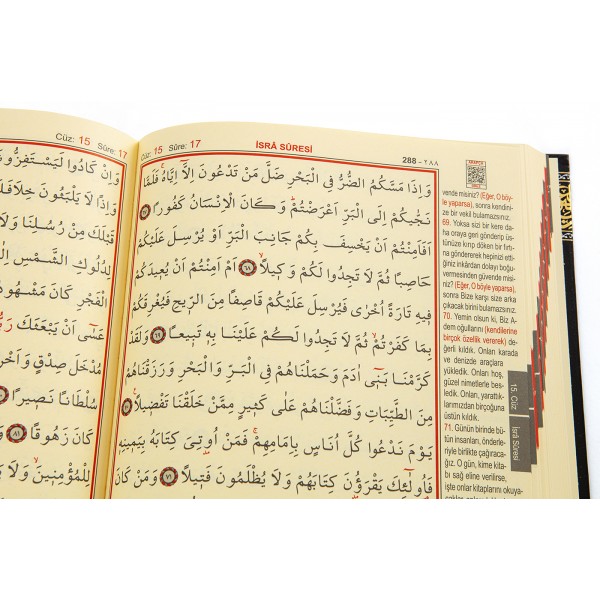 288 - ٢٨٨
İSRÂ SÛRESİ
Cüz: 15 Sûre: 17
وَاِذَا مَسَّكُمُ الضُّرُّ فِي الْبَحْرِ ضَلَّ مَنْ تَدْعُونَ اِلَّٓا اِيَّاهُۚ فَلَمَّا
نَجّٰيكُمْ اِلَى الْبَرِّ اَعْرَضْتُمْۜ وَكَانَ الْاِنْسَانُ كَفُورًا ﴿٦٧﴾
اَفَاَمِنْتُمْ اَنْ يَخْسِفَ بِكُمْ جَانِبَ الْبَرِّ اَوْ يُرْسِلَ عَلَيْكُمْ
حَاصِبًا ثُمَّ لَا تَجِدُوا لَكُمْ وَك۪يلًاۙ ﴿٦٨﴾ اَمْ اَمِنْتُمْ اَنْ يُع۪يدَكُمْ
ف۪يهِ تَارَةً اُخْرٰى فَيُرْسِلَ عَلَيْكُمْ قَاصِفًا مِنَ الرّ۪يحِ فَيُغْرِقَكُمْ
بِمَا كَفَرْتُمْۙ ثُمَّ لَا تَجِدُوا لَكُمْ عَلَيْنَا بِه۪ تَب۪يعًا ﴿٦٩﴾ وَلَقَدْ
كَرَّمْنَا بَن۪ٓي اٰدَمَ وَحَمَلْنَاهُمْ فِي الْبَرِّ وَالْبَحْرِ وَرَزَقْنَاهُمْ
مِنَ الطَّيِّبَاتِ وَفَضَّلْنَاهُمْ عَلٰى كَث۪يرٍ مِمَّنْ خَلَقْنَا تَفْض۪يلًا۟ ﴿٧٠﴾
يَوْمَ نَدْعُوا كُلَّ اُنَاسٍ بِاِمَامِهِمْۚ فَمَنْ اُو۫تِيَ كِتَابَهُ بِيَم۪ينِه۪
فَاُو۬لٰٓئِكَ يَقْرَؤُ۫نَ كِتَابَهُمْ وَلَا يُظْلَمُونَ فَت۪يلًا ﴿٧١﴾ وَمَنْ كَانَ
vende misiniz? (Eğer, O böy-
le yaparsa), sonra kendini-
ze bir vekil bulamazsınız.
69. Yoksa sizi bir kere da-
ha oraya geri gönderip üs-
tünüze kırıp döken bir fırtı-
na göndererek hepinizi etti-
ğiniz inkârdan dolayı boğu-
vermesinden güvende misi-
niz? (Eğer, O böyle yaparsa),
sonra Bize karşı size arka
çıkacak birini bulamazsınız.
70. Yemin olsun ki, Biz A-
dem oğullarını (kendilerine
birçok özellik vererek) de-
ğerli kıldık. Onları karada
ve denizde araçlara
yükledik. Onları hoş,
güzel nimetlerle bes-
ledik. Onları, yarattık-
larımızdan birçoğuna
üstün kıldık.
71. Günün birinde bü-
tün insanları, önderle-
riyle birlikte çağıraca-
ğız. O gün, kime kita-
bı sağ eline verilirse,
işte onlar kitaplarını okuya-
15. Cüz
İsrâ Sûresi
Cüz: 15 Sûre: 17
وَاِنْ كَادُوا لَيَسْتَفِزُّو
وَاِذًا لَا يَلْبَثُونَ خِلَافَكَ
قَبْلَكَ مِنْ رُسُلِنَا وَلَا
لِدُلُوكِ الشَّمْسِ
الْفَجْرِ كَانَ مَشْهُو
عَسٰٓى اَنْ يَبْعَثَكَ رَ
مُدْخَلَ صِدْقٍ وَا
سُلْطَانًا نَص۪يرًا ﴿٨٠﴾
كَانَ زَهُوقًا ﴿٨١﴾
لِلْمُؤْمِن۪ينَۙ وَلَا